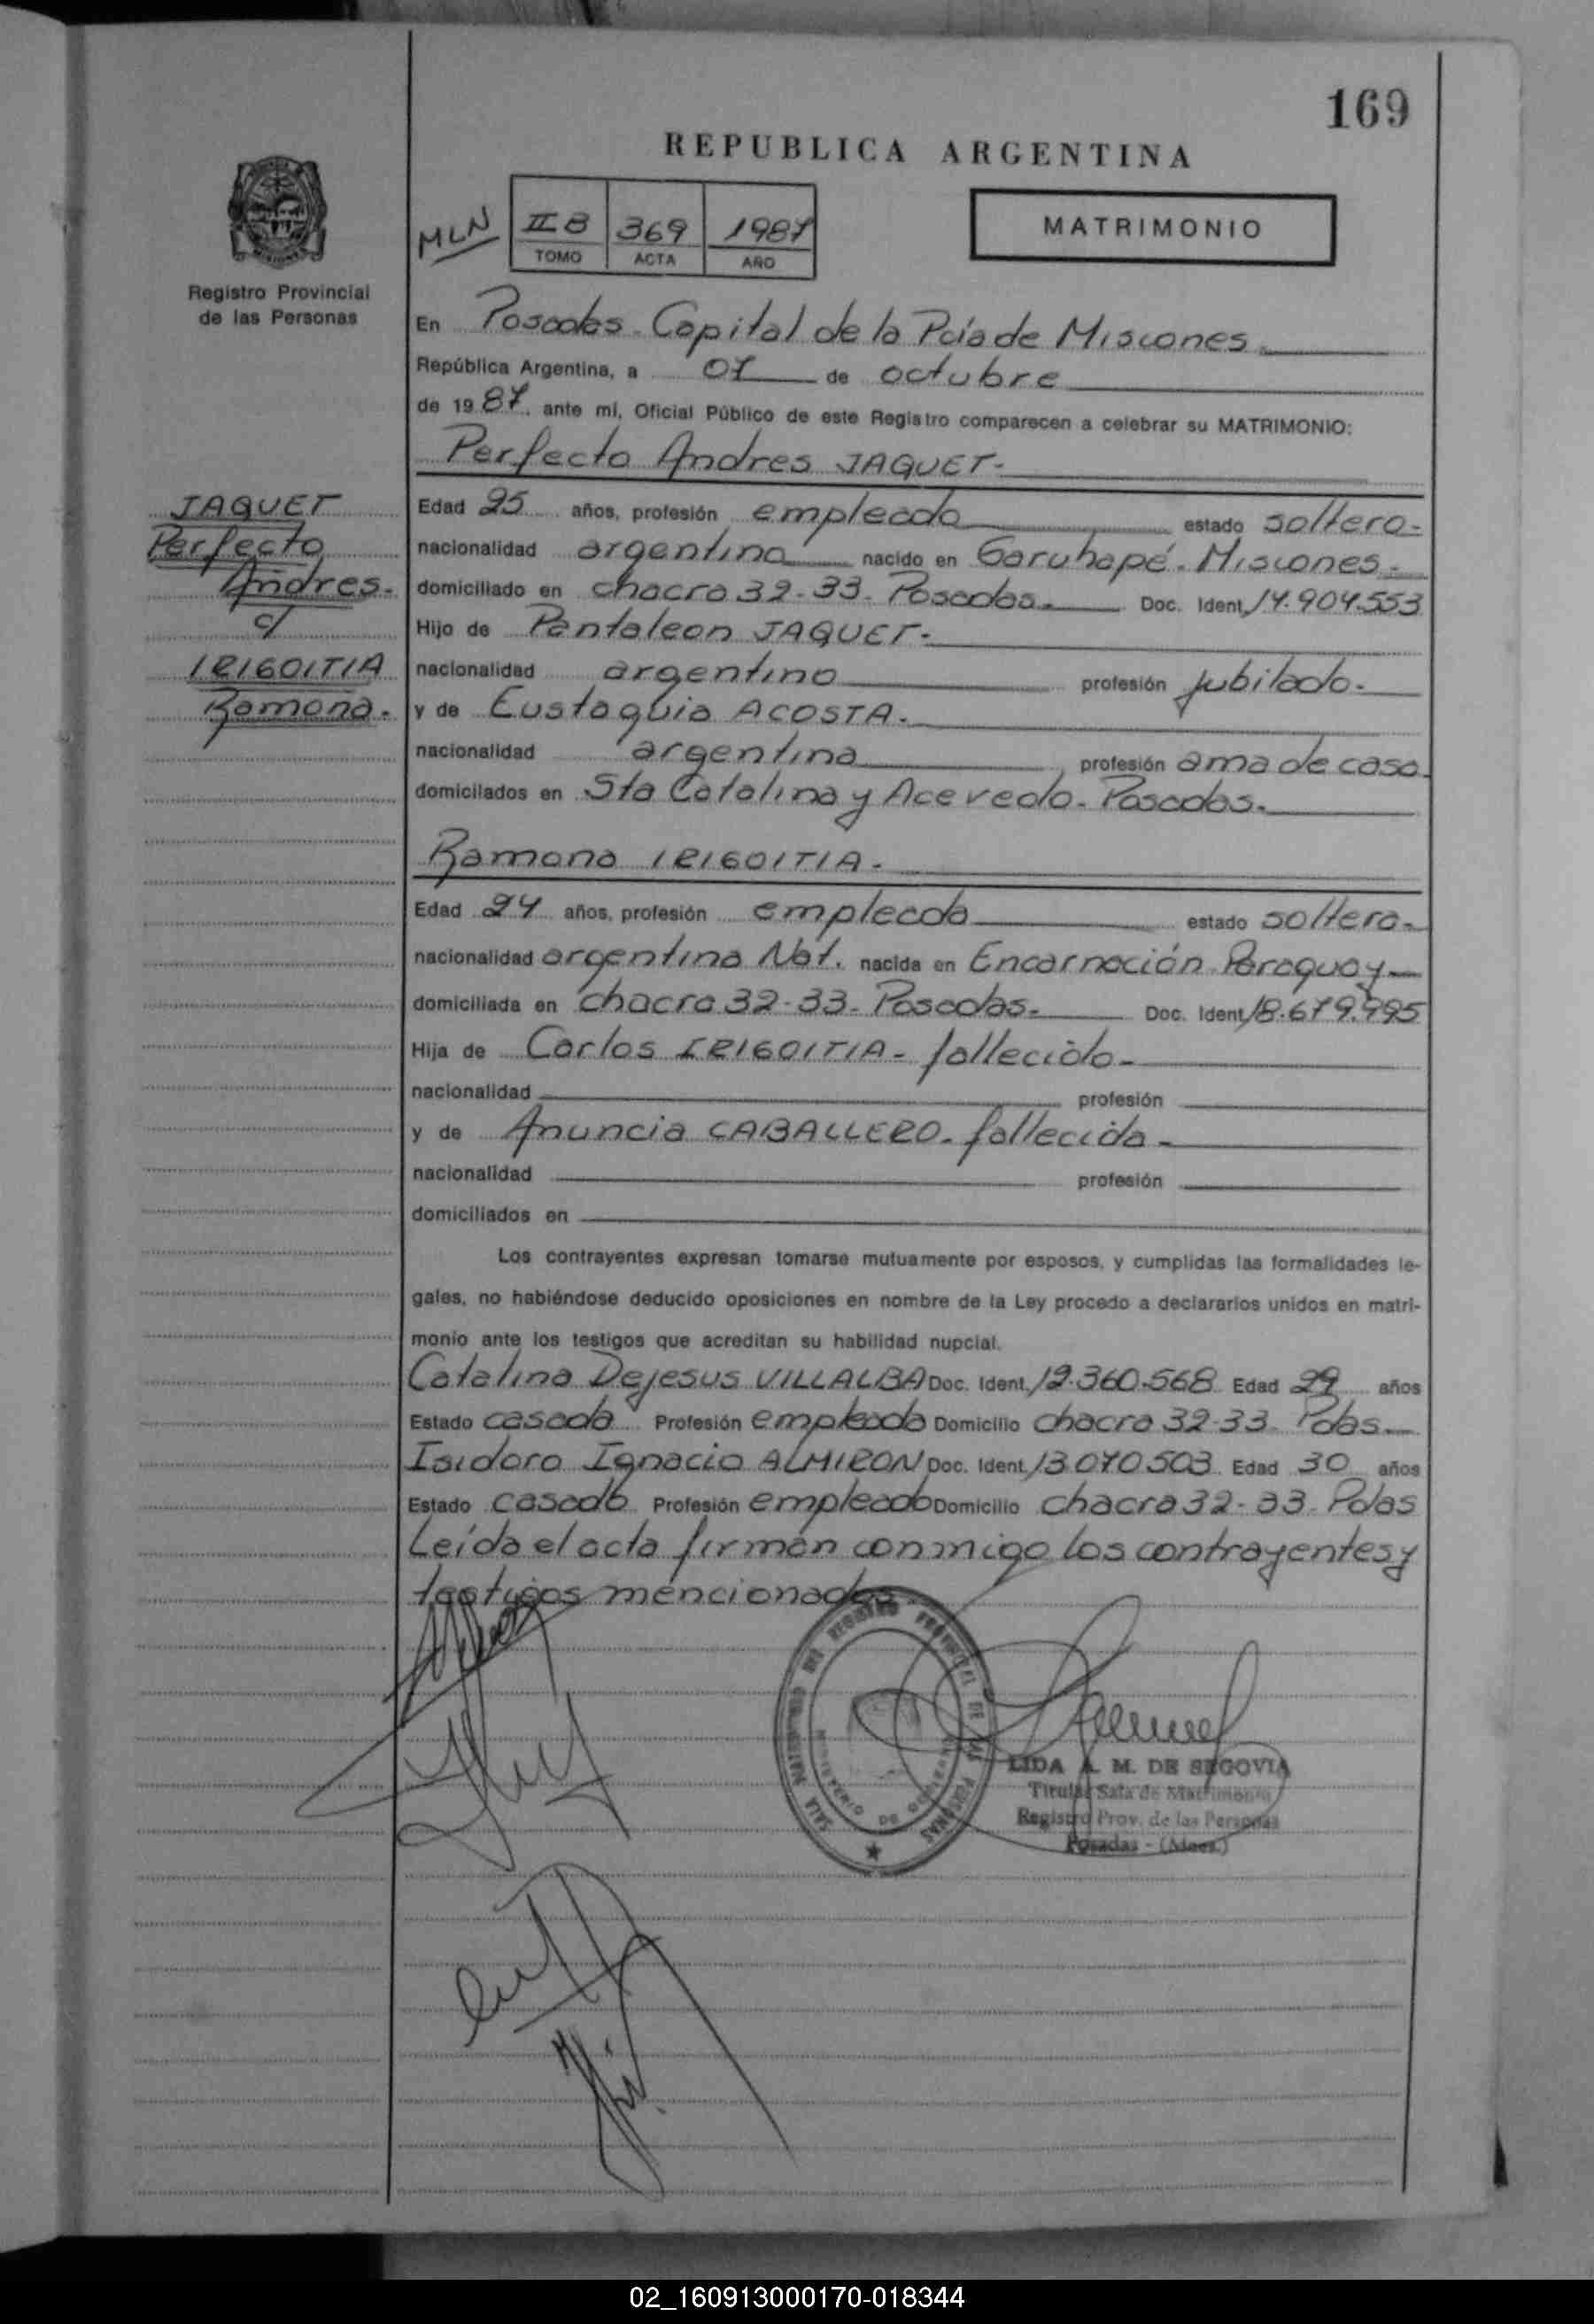 169
REPUBLICA ARGENTINA
MLN
II B 369 1987
TOMO ACTA AÑO
MATRIMONIO
Registro Provincial
de las Personas
En Posadas - Capital de la Pcia de Misiones.
República Argentina, a 07 de octubre
de 1987, ante mi, Oficial Público de este Registro comparecen a celebrar su MATRIMONIO:
Perfecto Andres JAQUET.
JAQUET
Perfecto
Andres.
c/
IRIGOITIA
Ramona.
Edad 25 años, profesión empleado estado soltero-
nacionalidad argentino nacido en Garuhapé - Misiones.
domiciliado en chacra 32-33- Posadas. Doc. Ident. 14.904.553
Hijo de Pantaleon JAQUET.
nacionalidad argentino profesión jubilado.
y de Eustaquia ACOSTA.
nacionalidad argentina profesión ama de casa.
domiciliados en Sta Catalina y Acevedo - Posadas.
Ramona IRIGOITIA.
Edad 24 años, profesión empleada estado soltera-
nacionalidad argentina Nat. nacida en Encarnación Paraguay
domiciliada en chacra 32-33- Posadas. Doc. Ident. 18.679.995
Hija de Carlos IRIGOITIA - fallecido -
nacionalidad profesión
y de Anuncia CABALLERO - fallecida -
nacionalidad profesión
domiciliados en
Los contrayentes expresan tomarse mutuamente por esposos, y cumplidas las formalidades le-
gales, no habiéndose deducido oposiciones en nombre de la Ley procedo a declararlos unidos en matri-
monio ante los testigos que acreditan su habilidad nupcial.
Catalina Dejesus VILLALBA Doc. Ident. 12.360.568 Edad 29 años
Estado casada Profesión empleada Domicilio chacra 32-33- Pdas.
Isidoro Ignacio ALMIRON Doc. Ident. 13.070.503 Edad 30 años
Estado casado Profesión empleado Domicilio chacra 32-33- Pdas
Leída el acta firman conmigo los contrayentes y
testigos mencionados
LIDA A. M. DE SEGOVIA
Titular Sala de Matrimonio
Registro Prov. de las Personas
Posadas - (Mnes.)
02_160913000170-018344